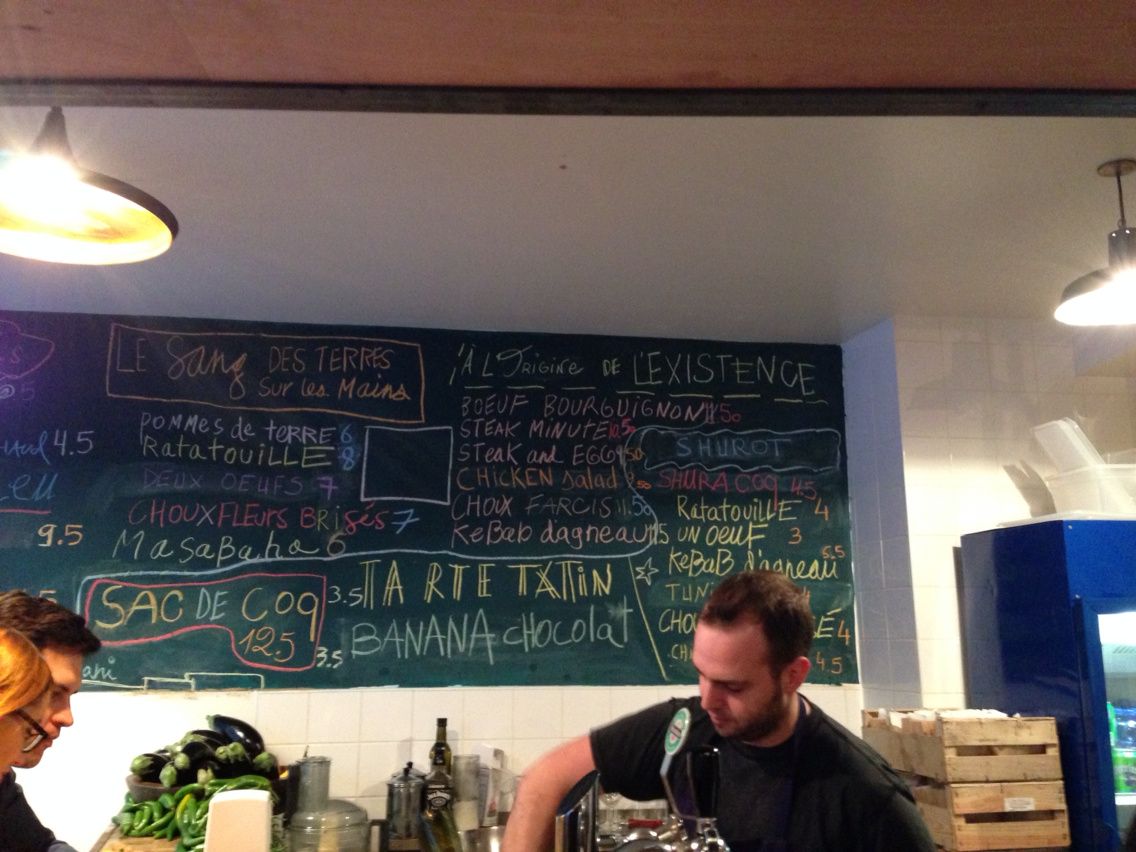 4.5
9.5
LE Sang DES TERRES
Sur les Mains
POMMes de TERRE 6
RataTouiLLE 8
DEUX OEUFS 7
CHOUXFLEURS BRiSés 7
MaSaBaha 6
SAC DE Coq
12.5
À L'Origine DE L'EXISTENCE
BOEUF BOURGUIGNON 11.50
STEAK MINUTE
STEAK and EGG
CHICKEN Salad
CHOUX FARCIS 11.50
KeBaB d'agneau
3.5 TARTE TATIN
3.5 BANANA CHOCOLAT
SHUROT
SHURA COQ 4.5
RataTouiLLE 4
UN OEUF 3
KeBaB d'agneau 5.5
4
4.5